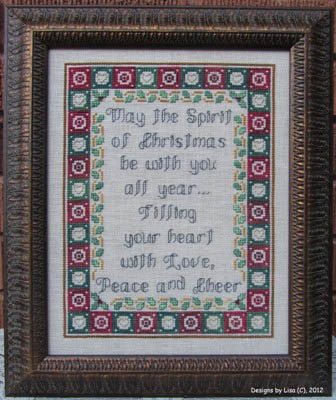 May the Spirit
of Christmas
be with you
all year...
Filling
your heart
with Love,
Peace and Cheer
Designs by Lisa (C), 2012